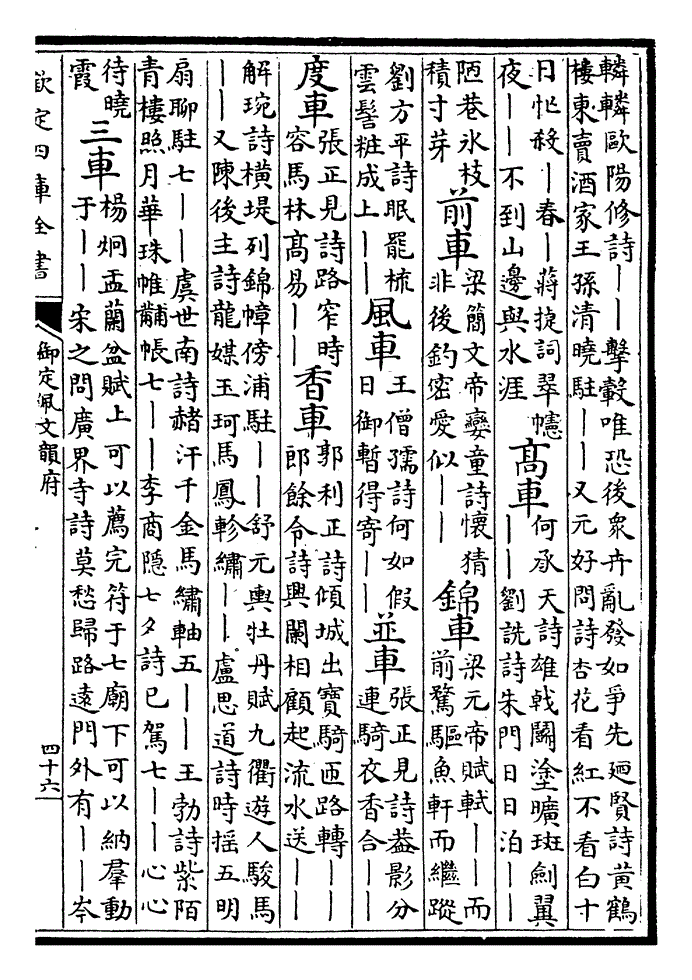 轔轔歐陽修詩——擊轂唯恐後衆卉亂發如爭先廼賢詩黃鶴
樓東賣酒家王孫清曉駐——又元好問詩杏花看紅不看白十
日忙殺—春—蔣捷詞翠幰
夜——不到山邊與水涯
髙車
何承天詩雄戟闢塗曠斑劍翼
——劉詵詩朱門日日泊——
陋巷氷枝
積寸芽
前車
梁簡文帝孌童詩懷猜
非後釣密愛似——
錦車
梁元帝賦軾——而
前驁驅魚軒而繼蹤
劉方平詩眠罷梳
雲髻粧成上——
風車
王僧孺詩何如假
日御暫得寄——
並車
張正見詩葢影分
連騎衣香合——
度車
張正見詩路窄時
容馬林髙易——
香車
郭利正詩傾城出寶騎匝路轉——
郎餘令詩興闌相顧起流水送——
解琬詩橫堤列錦幛傍浦駐——舒元輿牡丹賦九衢遊人駿馬
——又陳後主詩龍媒玉珂馬鳳軫繡——盧思道詩時搖五明
扇聊駐七——虞世南詩赭汗千金馬繡軸五——王勃詩紫陌
青樓照月華珠帷黼帳七——李商隱七夕詩已駕七——心心
待曉
霞
三車
楊炯盂蘭盆賦上可以薦完符于七廟下可以納羣動
于——宋之問廣界寺詩莫愁歸路遠門外有——岑
欽定四庫全書
御定佩文韻府
四十六